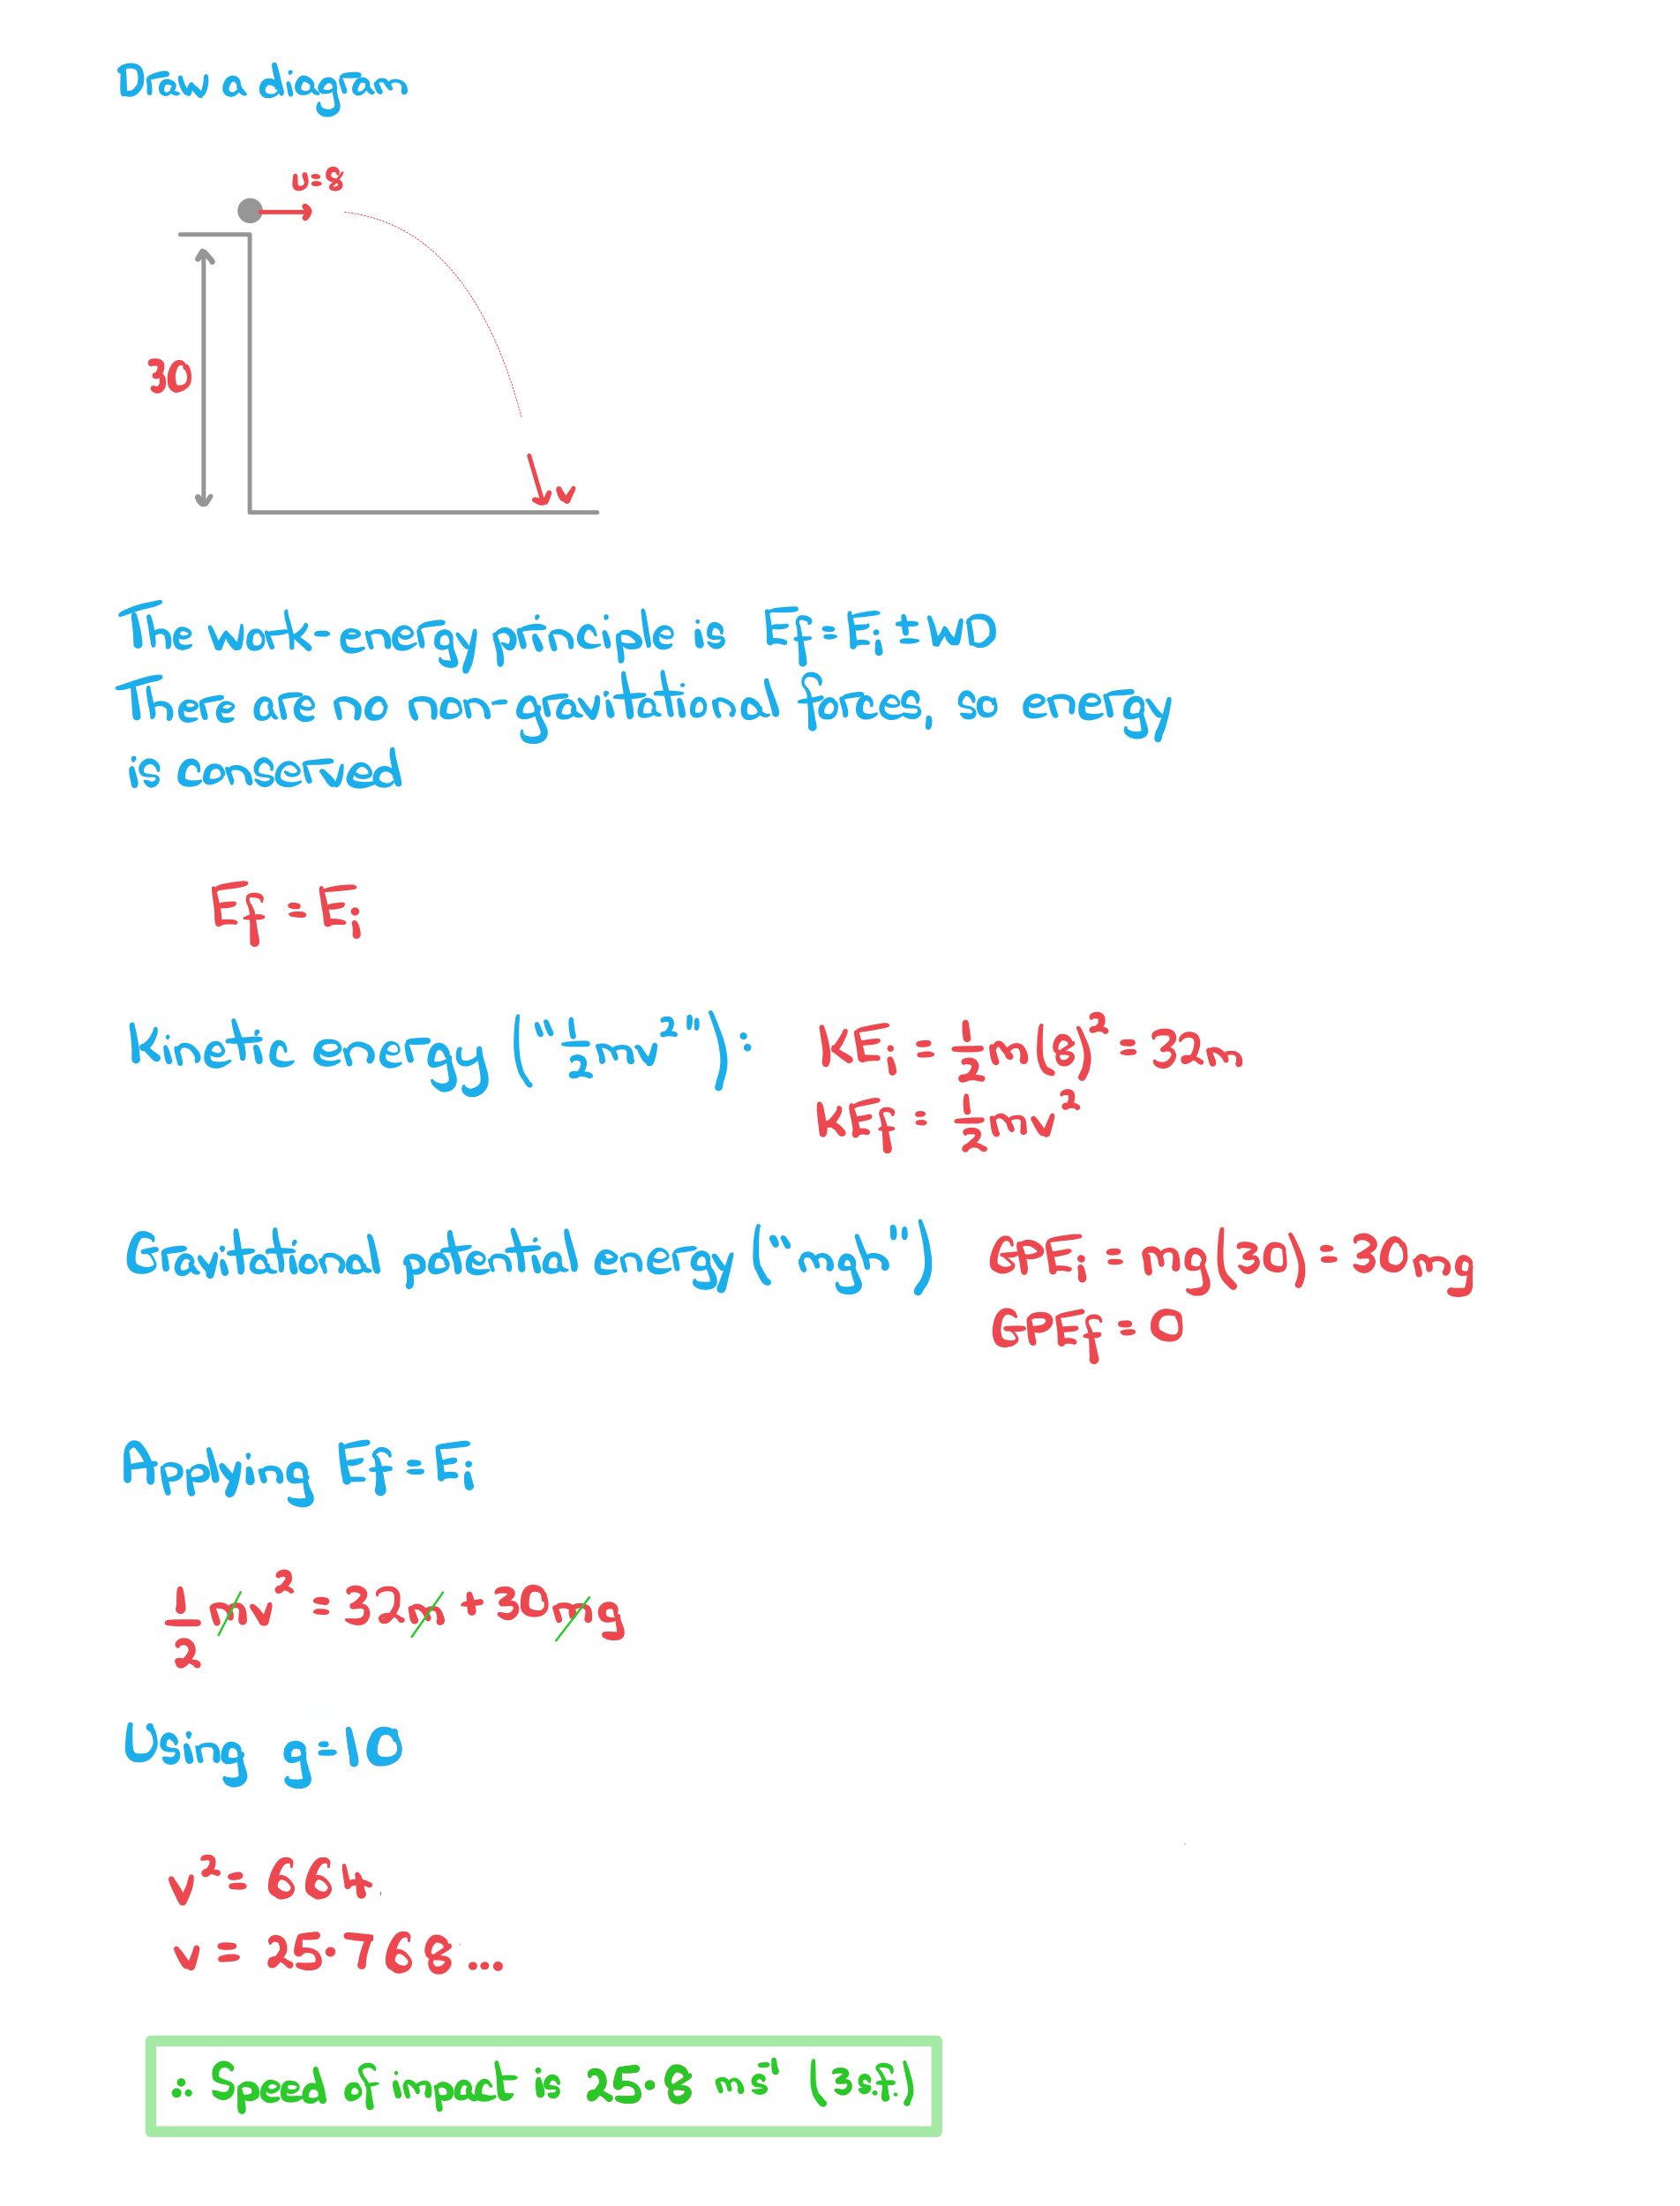 Draw a diagram
u=8
30
v
The work-energy principle is Ef=Ei±WD
There are no non-gravitational forces, so energy
is conserved
Ef = Ei
Kinetic energy ("½mv²"): KEi = ½m(8)² = 32m
KEf = ½mv²
Gravitational potential energy ("mgh") GPEi = mg(30) = 30mg
GPEf = 0
Applying Ef = Ei
½mv² = 32m + 30mg
Using g=10
v² = 664
v = 25·768...
∴ Speed of impact is 25·8 ms⁻¹ (3 s.f.)